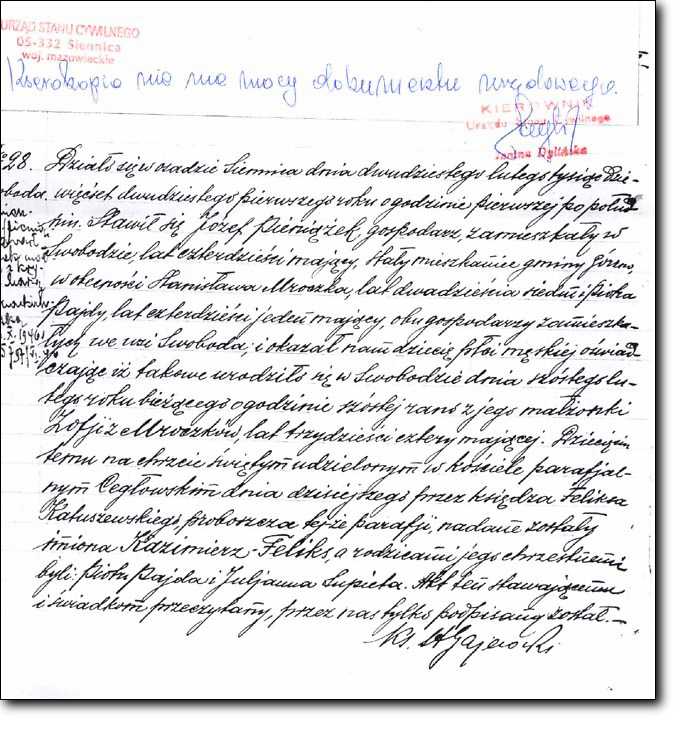 URZĄD STANU CYWILNEGO
05-332 Siennica
woj. mazowieckie
Kserokopia nie ma mocy dokumentu urzędowego.
KIEROWNIK
Urzędu Stanu Cywilnego
Janina Dylińska
28. Działo się w osadzie Siennica dnia dwudziestego lutego tysiąc dzie-
więćset dwudziestego pierwszego roku o godzinie pierwszej po połud-
niu. Stawił się Józef Pieniążek, gospodarz, zamieszkały w
Swobodzie, lat czterdzieści mający, stały mieszkaniec gminy
w obecności Stanisława Mroczka, lat dwadzieścia siedm i Piotra
Pajdy, lat czterdzieści jeden mający, obu gospodarzy zamieszka-
łych we wsi Swoboda, i okazał nam dziecię płci męskiej oświad-
czając iż takowe urodziło się w Swobodzie dnia szóstego lu-
tego roku bieżącego o godzinie szóstej rano z jego małżonki
Zofji z Mroczków, lat trzydzieści cztery mającej. Dziecięciu
temu na chrzcie świętym udzielonym w kościele parafjal-
nym Cegłowskim dnia dzisiejszego przez księdza Feliksa
Kałuszewskiego, proboszcza tejże parafji, nadane zostały
imiona Kazimierz-Feliks, a rodzicami jego chrzestnemi
byli: Piotr Pajda i Juljanna Supieta. Akt ten stawającemu
i świadkom przeczytany, przez nas tylko podpisany został.—
Ks. St Gajewski